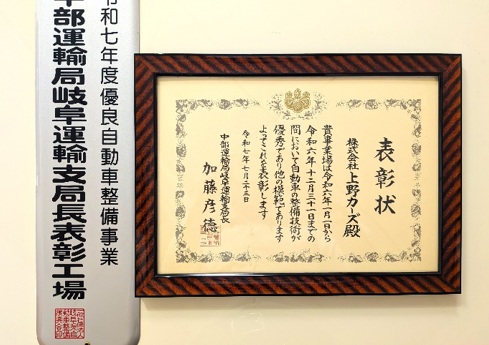 令和七年度優良自動車整備事業
中部運輸局岐阜運輸支局長表彰工場
表彰状
株式会社上野カーズ殿
貴事業場は令和六年一月一日から
令和六年十二月三十一日までの
間において自動車の整備技術が
優秀であり他の模範であります
よってこれを表彰します
令和七年七月二十五日
中部運輸局岐阜運輸支局長
加藤彦徳